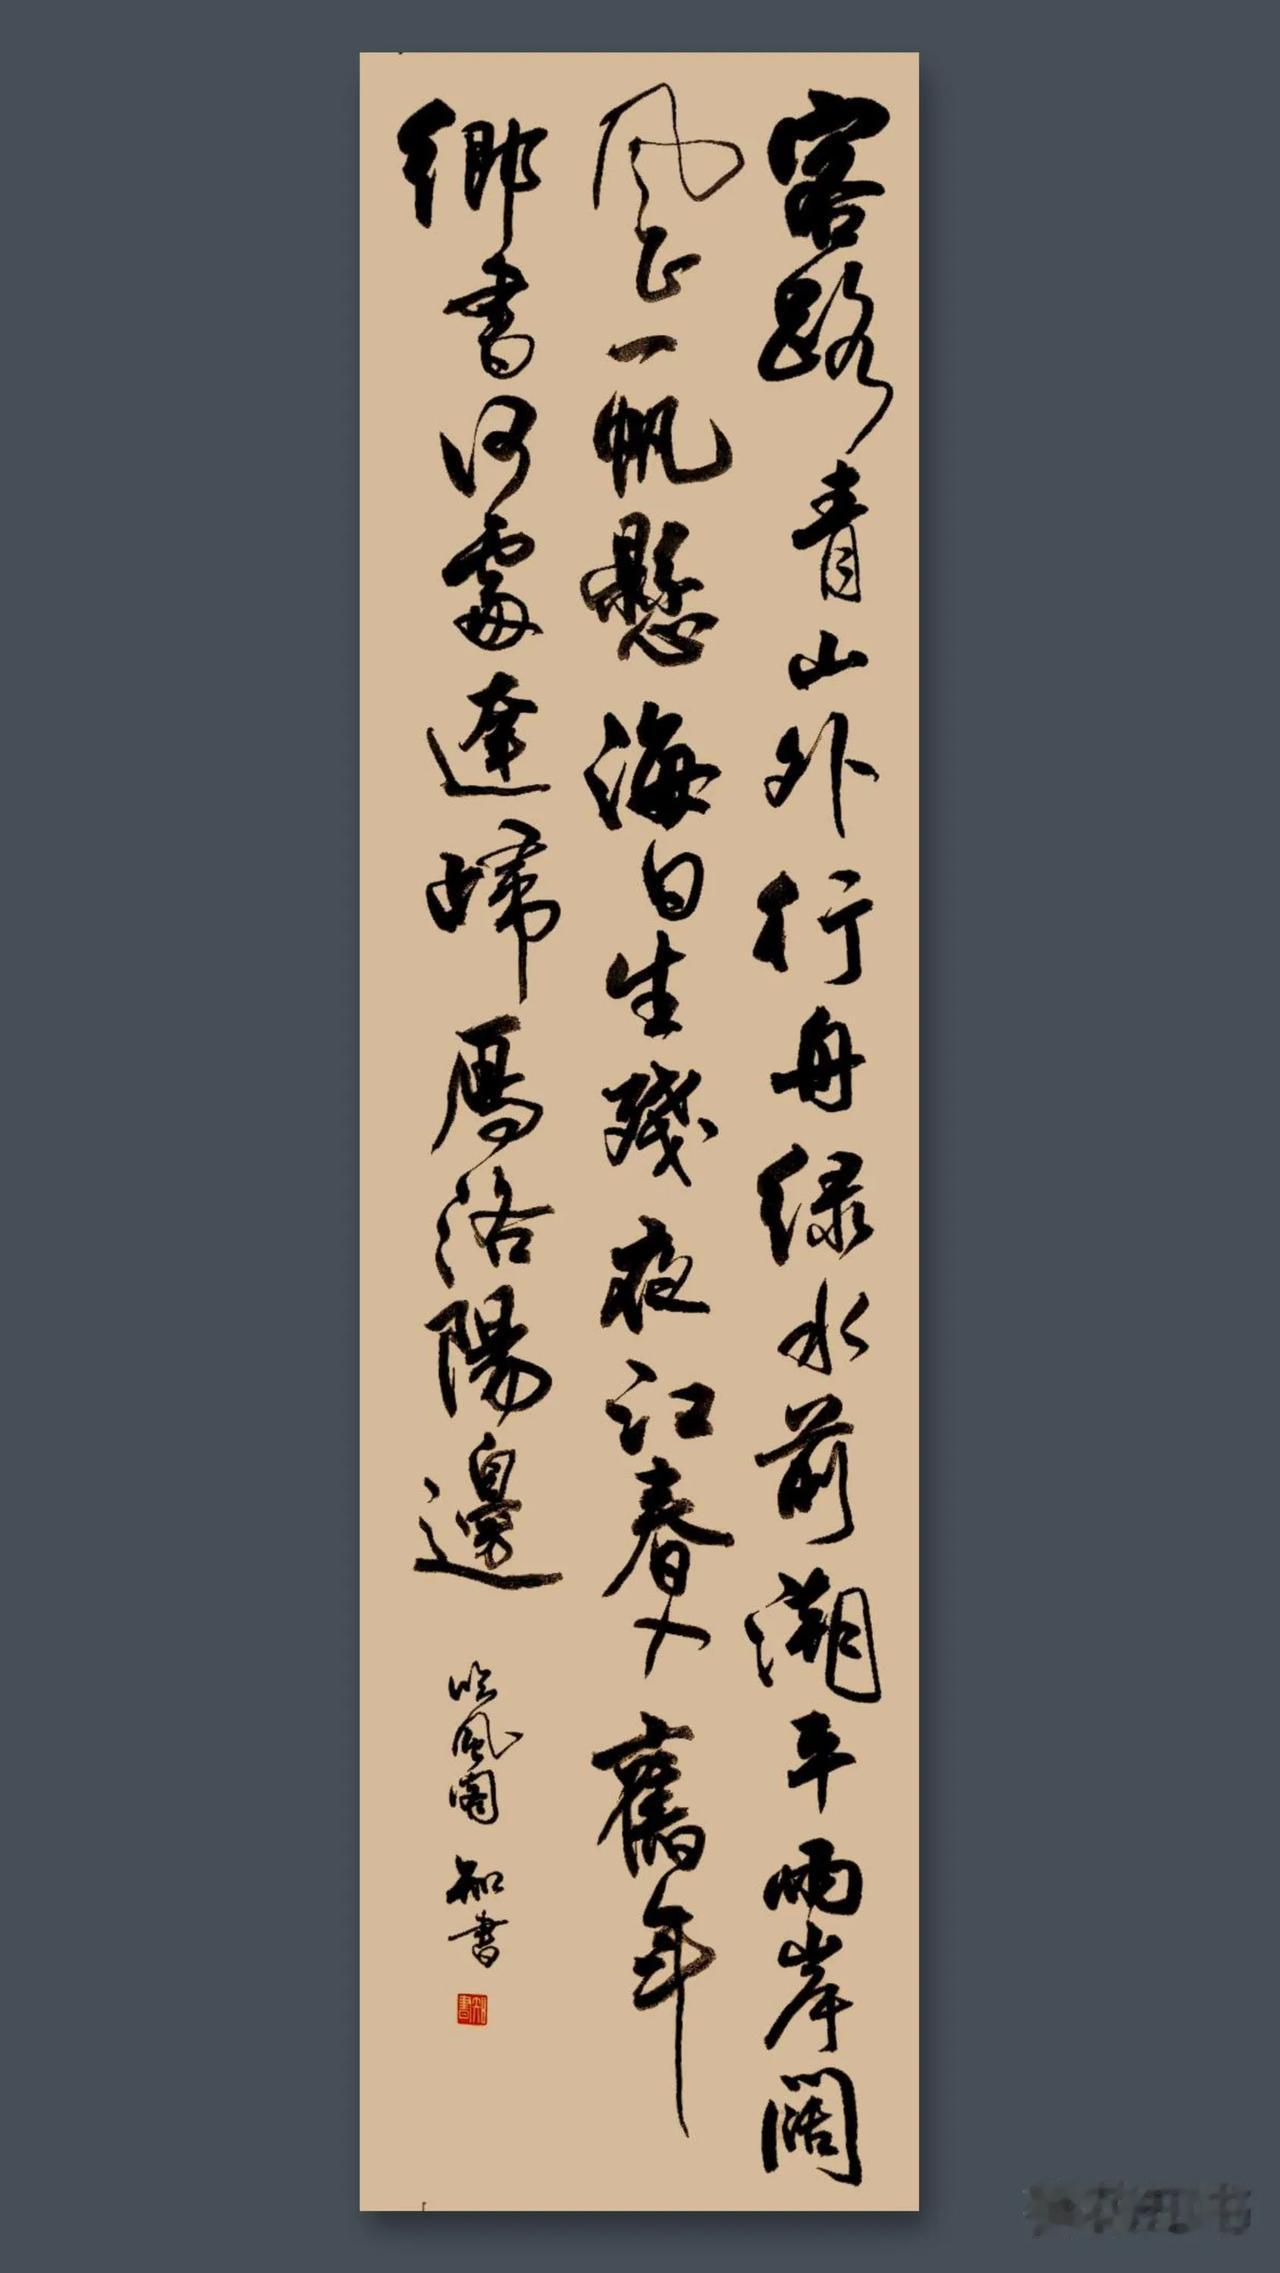 客路青山外行舟緑水前潮平兩岸闊
風正一帆懸海日生殘夜江春入舊年
鄉書何處達歸雁洛陽邊
吟風閣 知書